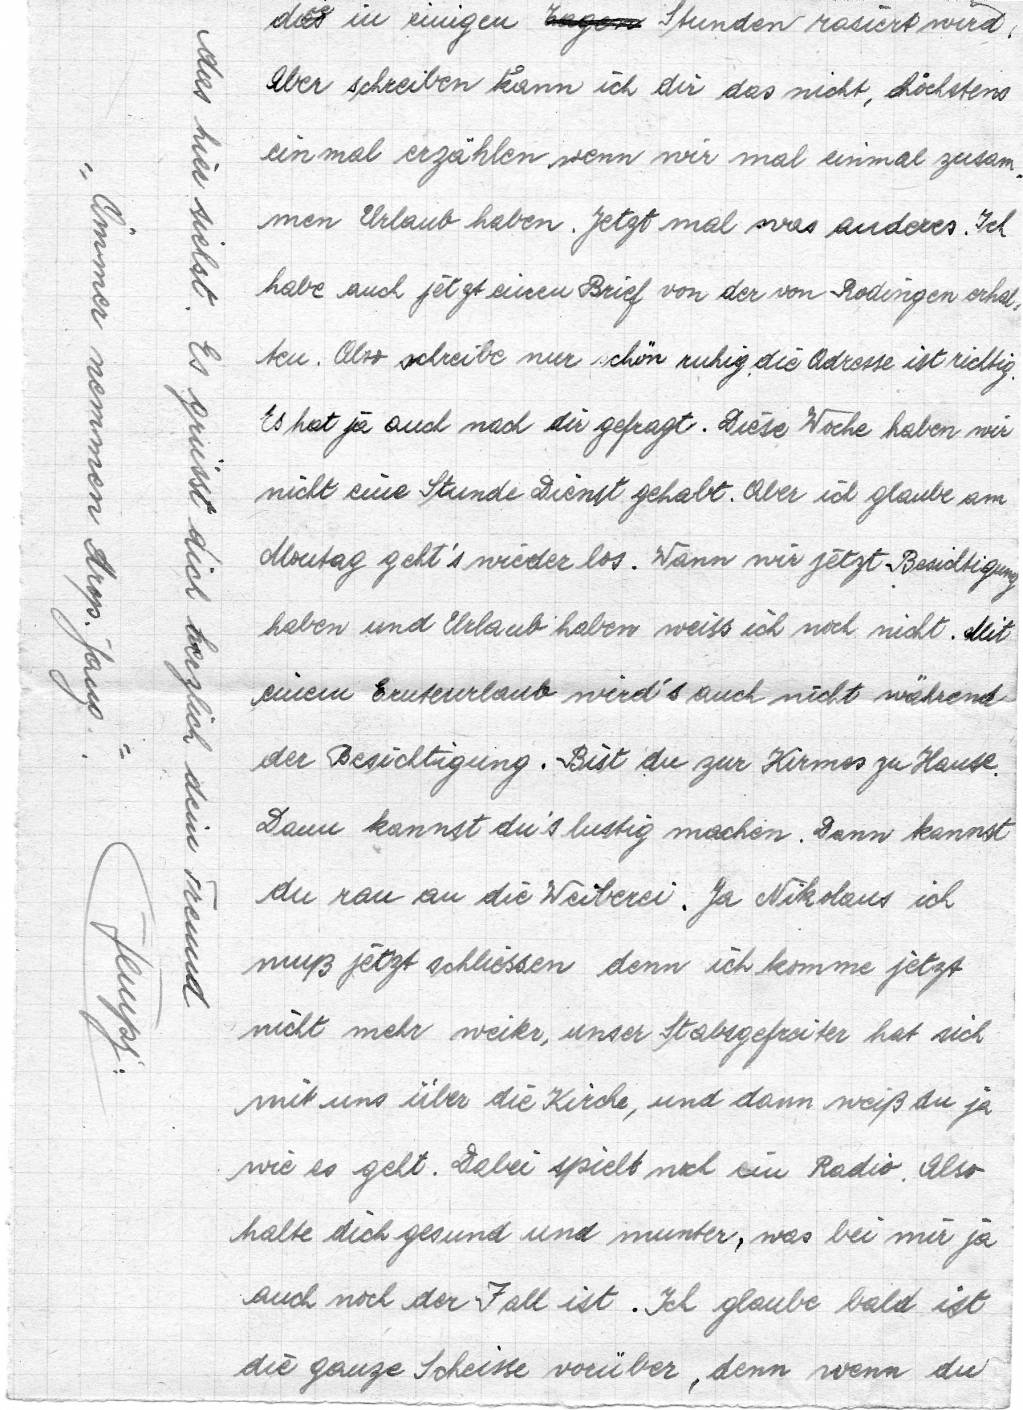 dies in einigen Stunden rasiert wird.
Aber schreiben kann ich dir das nicht, höchstens
einmal erzählen wenn wir mal einmal zusam-
men Urlaub haben. Jetzt mal was anderes. Ich
habe auch jetzt einen Brief von der von Rodingen erhal-
ten. Also schreibe nur schön ruhig die Adresse ist richtig.
Es hat ja auch nach dir gefragt. Diese Woche haben wir
nicht eine Stunde Dienst gehabt. Aber ich glaube am
Montag geht's wieder los. Wann wir jetzt Besichtigung
haben und Urlaub haben weiss ich noch nicht. Mit
einem Ernteurlaub wird's auch nicht während
der Besichtigung. Bist du zur Kirmes zu Hause.
Dann kannst du's lustig machen. Dann kannst
du ran an die Weiberei. Ja Nikolaus ich
muß jetzt schliessen denn ich komme jetzt
nicht mehr weiter, unser Stabsgefreiter hat sich
mit uns über die Kirche, und dann weiß du ja
wie es geht. Dabei spielt noch ein Radio. Also
halte dich gesund und munter, was bei mir ja
auch noch der Fall ist. Ich glaube bald ist
die ganze Scheisse vorüber, denn wenn du
das hier siehst. Es grüsst dich herzlich dein Freund
"Ömmer nemmen